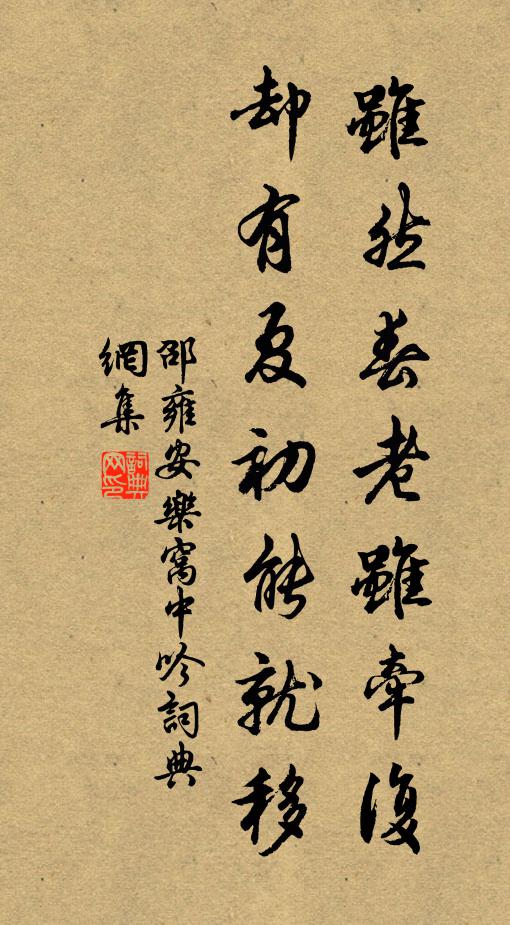 雖然春老雖牽復
却有夏初能就移
邵雍安樂窩中吟詞典
網集
詞典網印